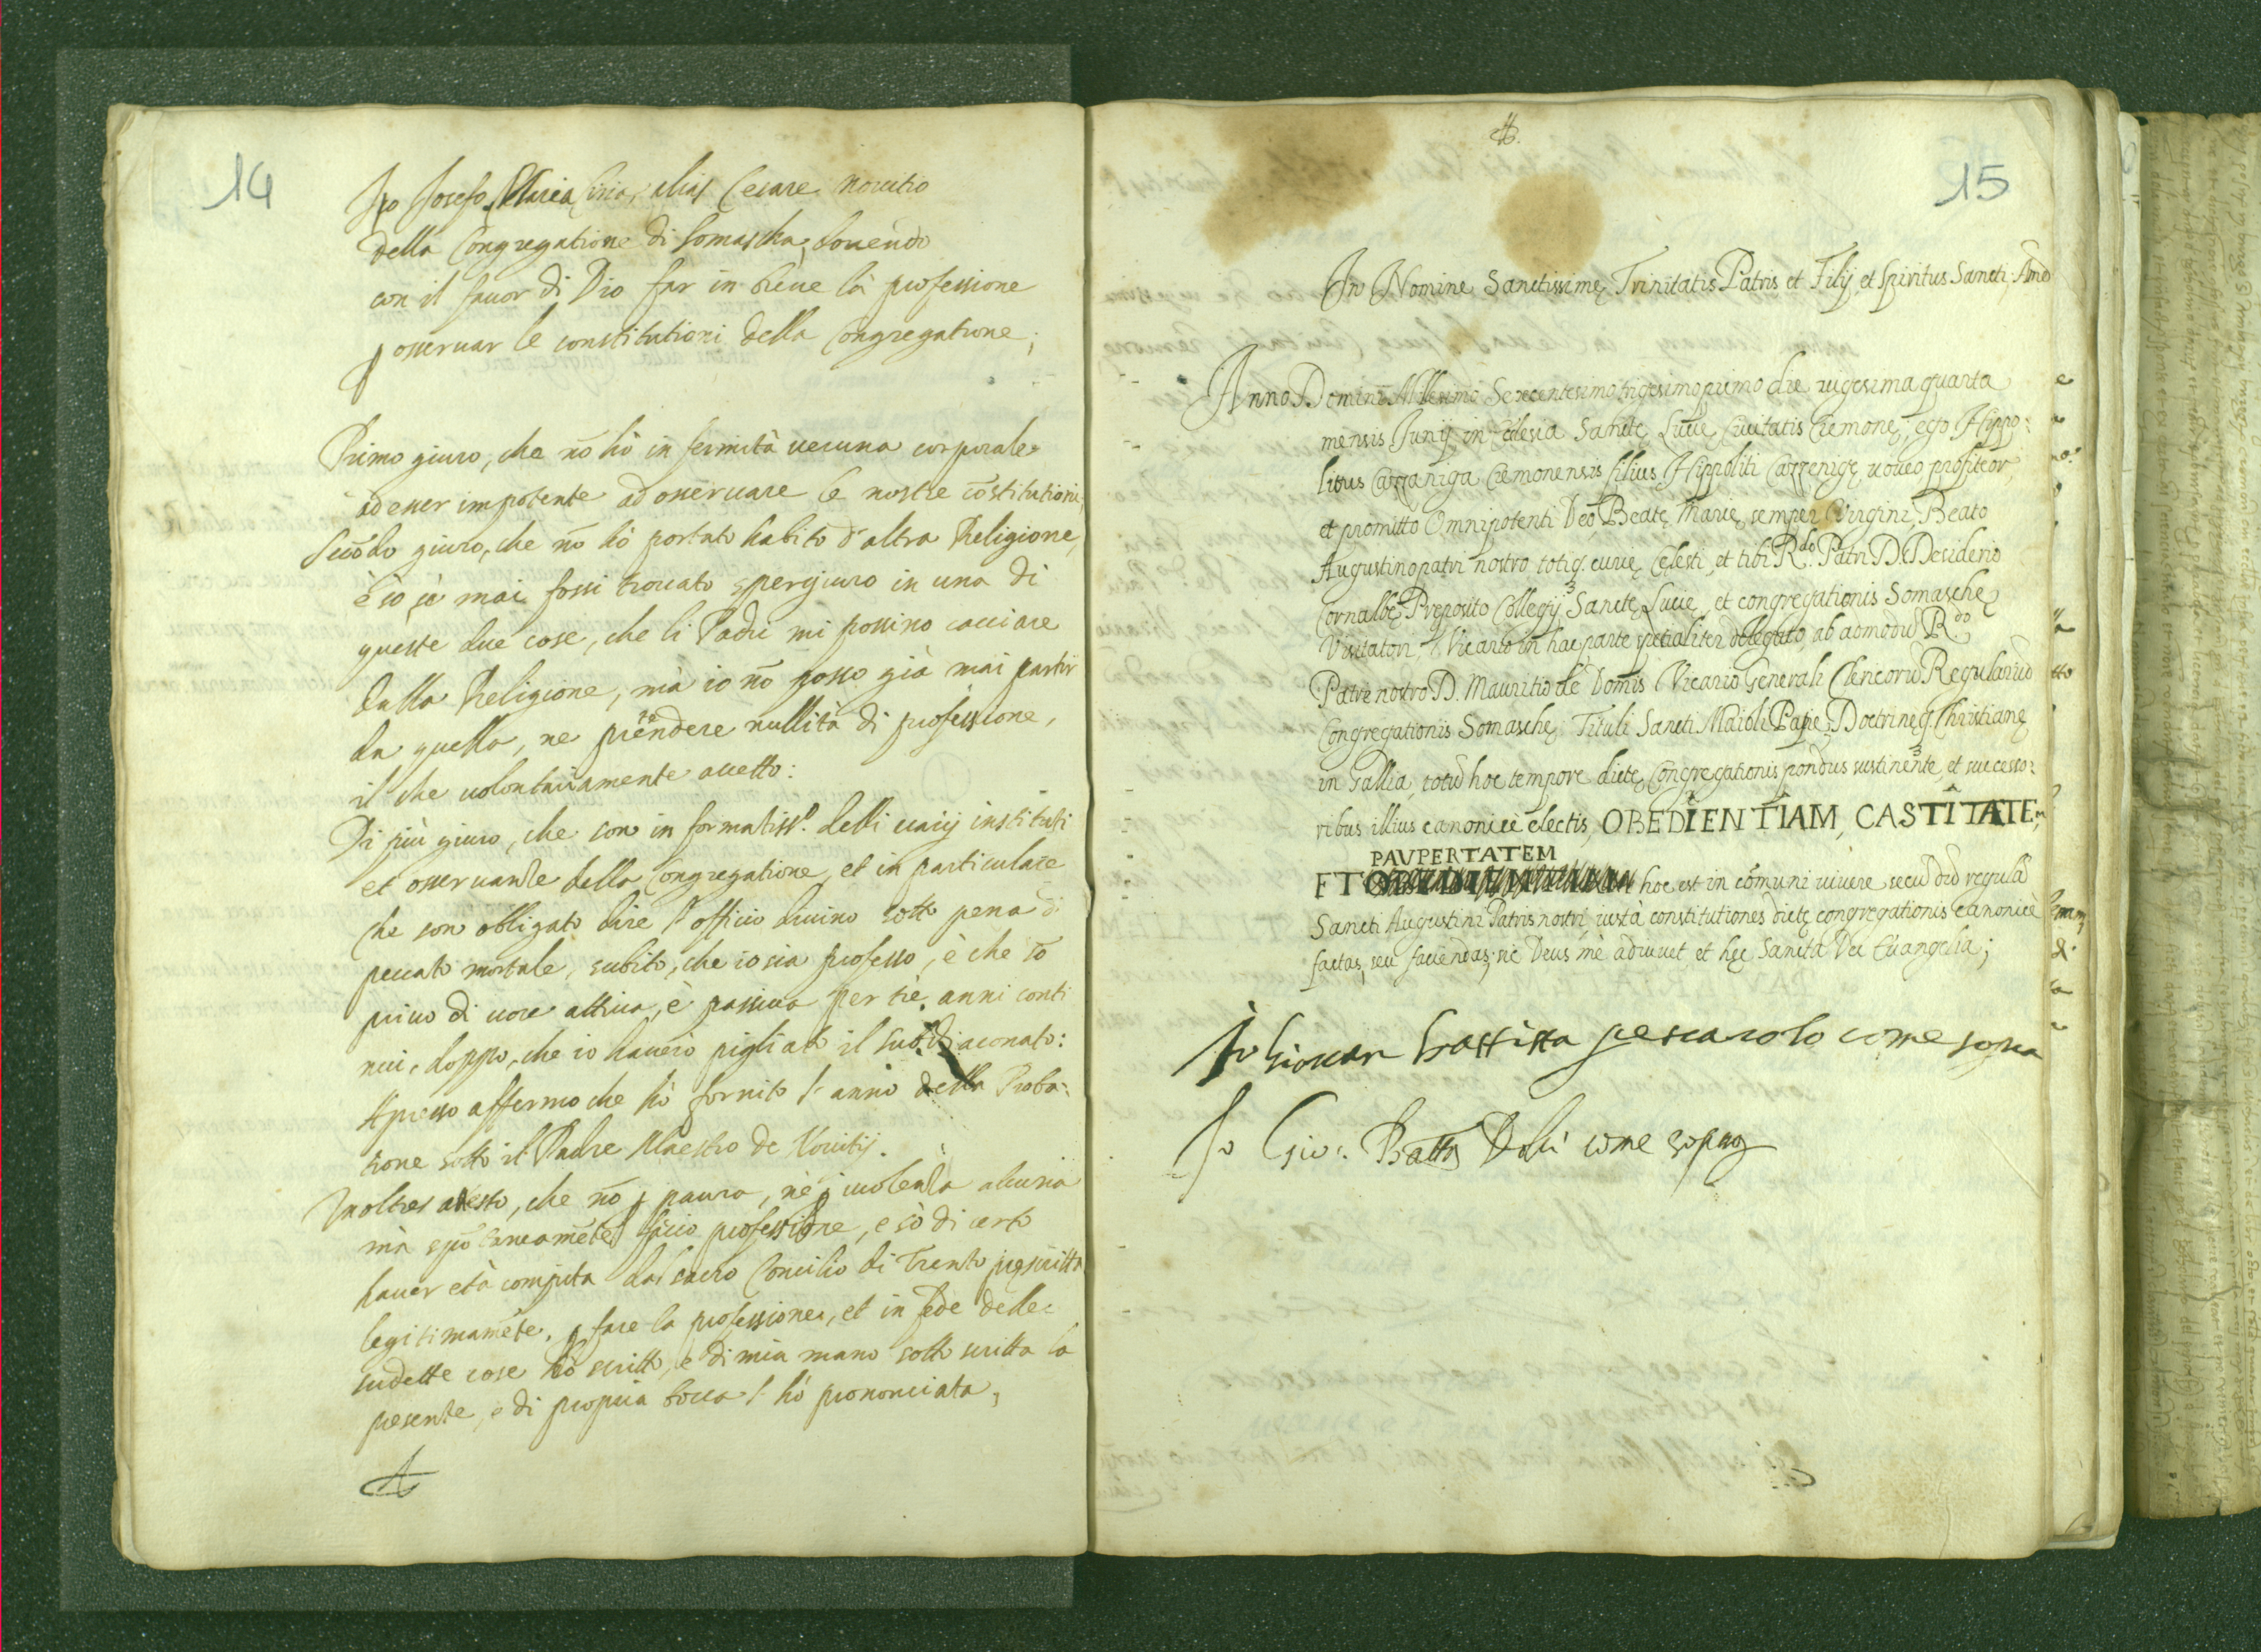 14
Io Josefo Maria Ciria, alias Cesare novitio
della Congregatione di Somascha, douendo
con il fauor di Dio far in breue la professione
p osseruar le constitutioni della Congregatione;
Primo giuro, che nõ hò infermità ueruna corporale
ad esser impotente ad osseruare le nostre cõstitutioni,
Secõdo giuro, che nõ hò portato habito d'altra Religione,
è sò sè mai fossi trouato spergiuro in una di
queste due cose, che li Padri mi possino cacciare
dalla Religione, mà io nõ posso già mai partir
da quella, ne prẽtendere nullità di professione,
il che uolontariamente accetto:
Di più giuro, che son informatiss.º delli uarij instituti
et osseruanze della Congregatione, et in particulare
che son obligato dire l'officio diuino sotto pena di
peccato mortale, subito, che io sia professo, è che sõ
priuo di uoce attiua, è passiua per trè anni conti
nui, doppo, che io hauerò pigliato il Subdiaconato:
Apresso affermo che hò fornito l'anno della Proba:
tione sotto il Padre Maestro de Nouitij.
Inoltre atesto, che nõ p paura, nè p uiolenza alcuna
mà spõtaneamẽte faccio professione, e sò di certo
hauer età compita dal sacro Concilio di Trento prescritta
legitimamẽte, p fare la professione, et in fede delle
sudette cose hò scritto, e di mia mano sotto scritta la
presente, e di propria bocca l'hò prononciata;
15
In Nomine Sanctissimę Trinitatis Patris et Filij et Spiritus Sancti Amẽ
Anno Domini Millesimo Sexcentesimo trigesimo primo die uigesima quarta
mensis Junij in Eclesia Sanctę Lucię Ciuitatis Cremonę; ego Hippo:
litus Cazzaniga Cremonensis filius Hippoliti Cazzenigę uoueo profiteor,
et promitto Omnipotenti Deo, Beatę Marię semper Virgini, Beato
Augustino patri nostro totiq. curię Celesti, et tibi R.do Patri D. Desiderio
Cornalbę Preposito Collegij Sanctę Lucię et congregationis Somaschę
Visitatori, Vicario in hac parte spetialiter delegato, ab admodũ R.do
Patre nostro D. Mauritio de Domis Vicario Generali Clericorũ Regulariũ
Congregationis Somaschę Tituli Sancti Maioli Papię, Doctrinęq. Christianę
in Gallia, totiũ hoc tempore dictę Congregationis pondus sustinente, et successo:
ribus illius canonicè electis, OBEDIENTIAM, CASTITATEm,
PAVPERTATEM
ET hoc est in cõmuni uiuere secũdũ regulã
Sancti Augustini Patris nostri, iuxtà constitutiones dictę congregationis canonicè
factas, seu faciendas; sic Deus mè adiuuet et hęc Sancta Dei Euangelia;
Io Giouan battista pescarolo come sopra
Io Gio: Batta Dolci come sopra